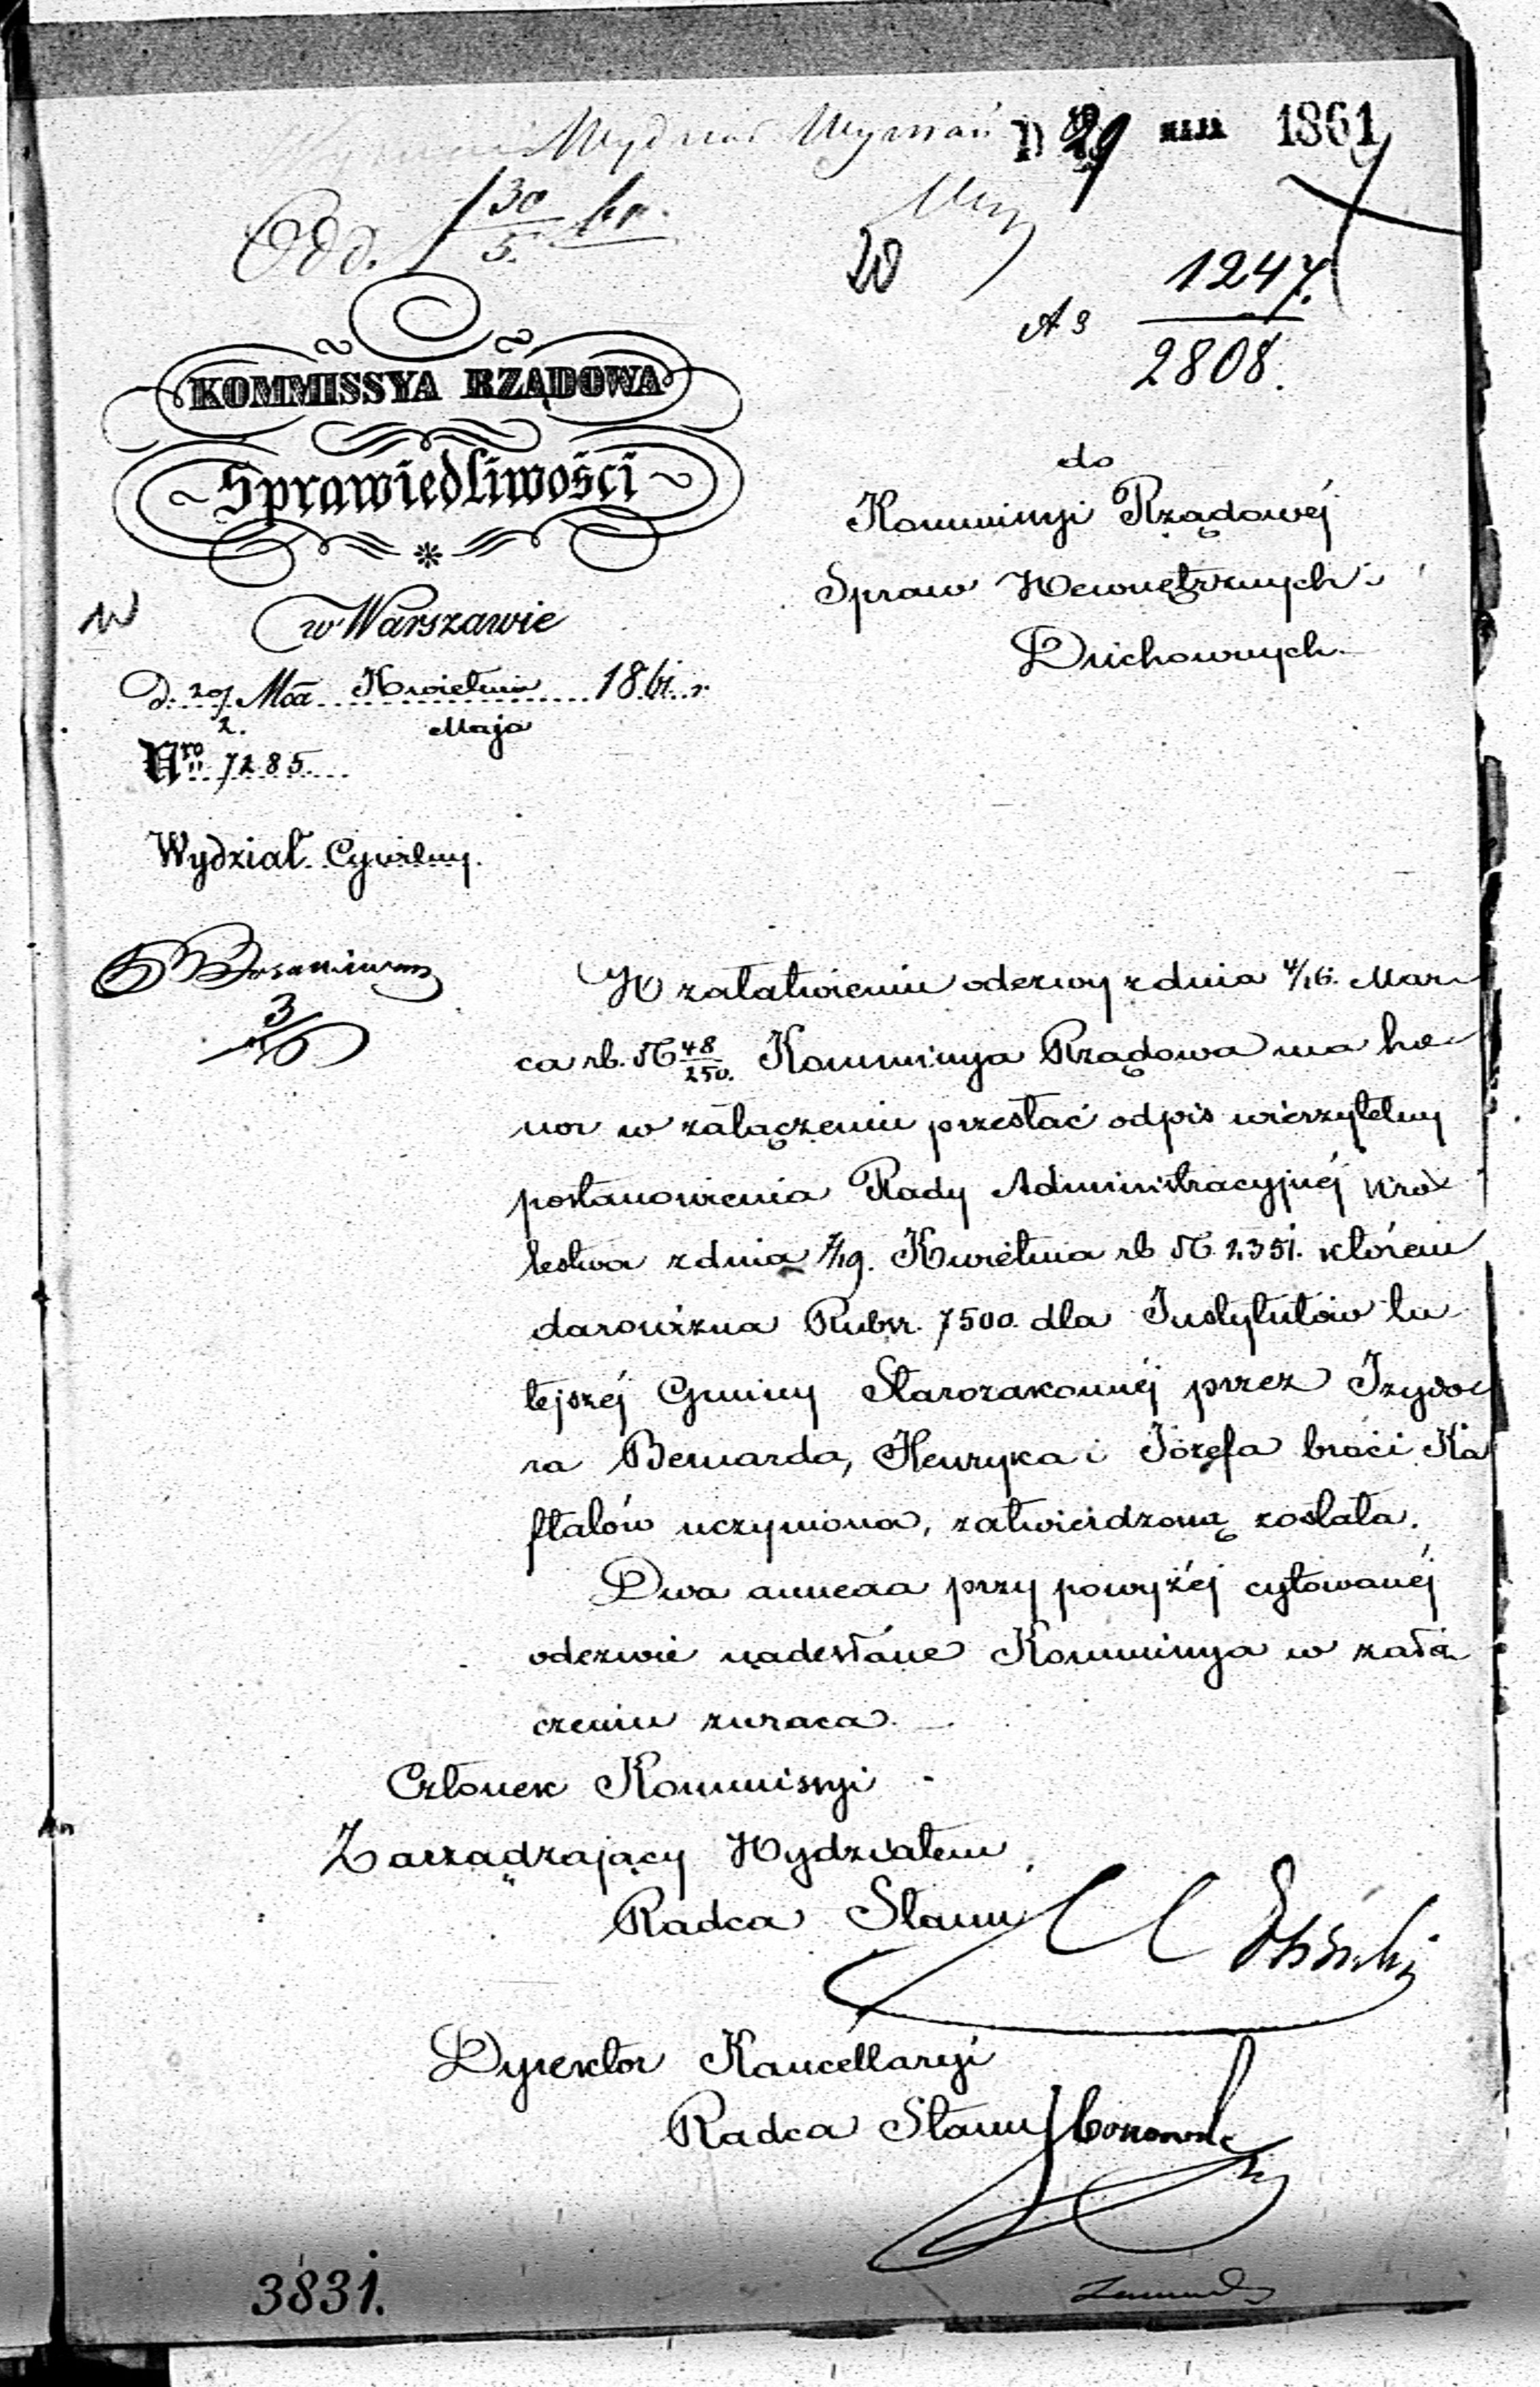 Wydział Wyznań D 29 MAJA 1861
Odd. 30/5
20
1247.
2808.
KOMMISSYA RZĄDOWA
Sprawiedliwości
w Warszawie
D. 20/2. Mca Kwietnia/Maja 1861. r.
Nro 7285.
Wydział Cywilny.
do
Kommissyi Rządowéj
Spraw Wewnętrznych i
Duchownych
3/5
W załatwieniu odezwy z dnia 4/16. Mar-
ca rb. N 48/250. Kommissya Rządowa ma ho-
nor w załączeniu przesłać odpis wierzytelny
postanowienia Rady Administracyjnéj Kró-
lestwa z dnia 7/19. Kwietnia rb N. 2351. którem
darowizna Rubsr. 7500. dla Instytutów tu-
tejszéj Gminy Starozakonnéj przez Izydo-
ra Bernarda, Henryka i Józefa braci Na-
ftalów uczyniona, zatwierdzoną została.
Dwa annexa przy powyżéj cytowanéj
odezwie nadesłane Kommissya w załą-
czeniu zwraca.
Członek Kommissyi
Zarządzający Wydziałem
Radca Stanu
Dyrektor Kancellaryi
Radca Stanu
3831.